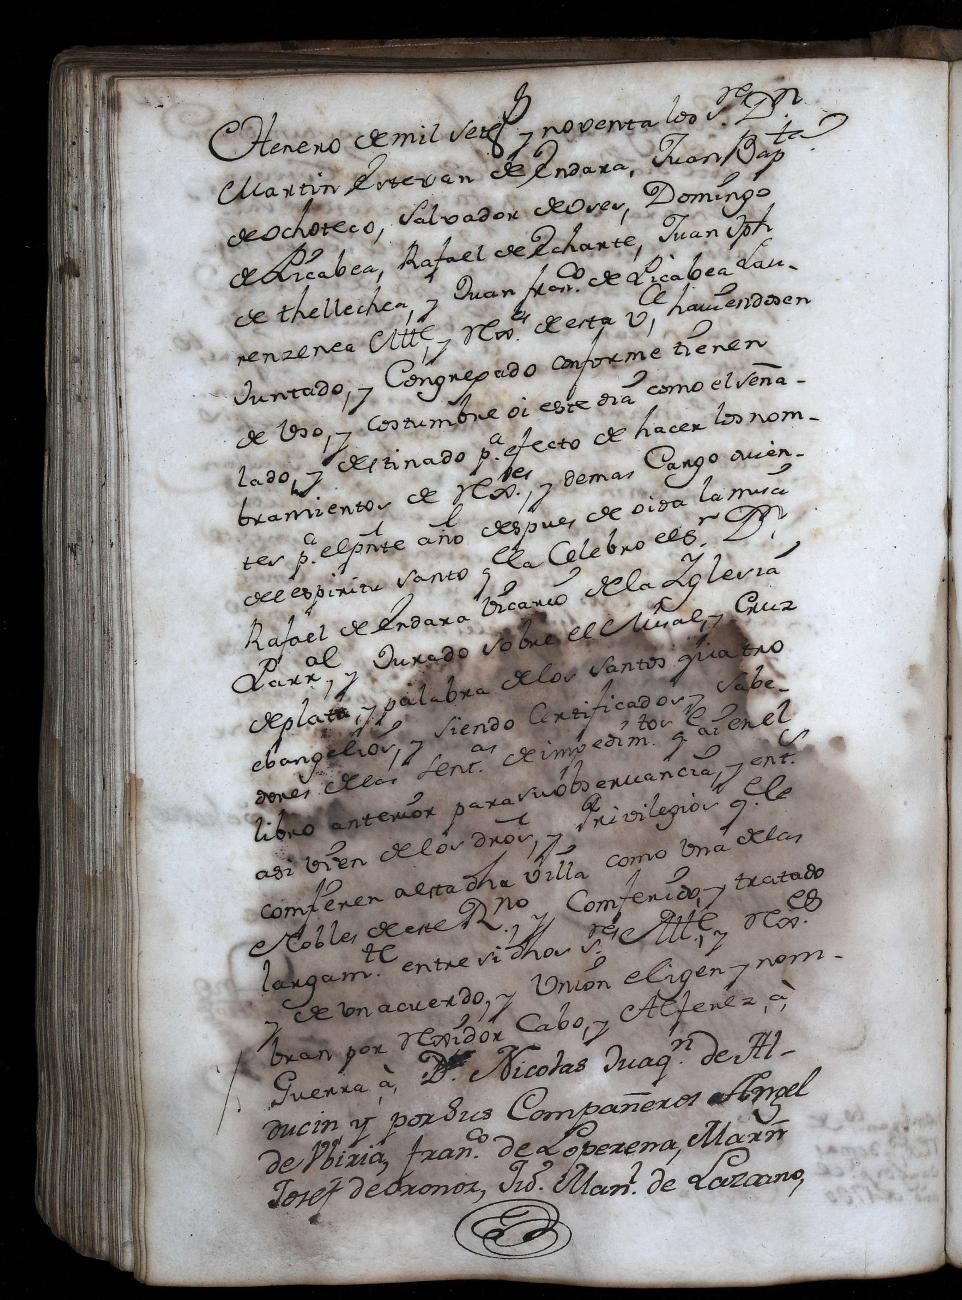 Henero de mil setes. y noventa los S.res D.n
Martin Estevan de Endara, Juan Bap.ta
de Ochoteco, Salvador de Oses, Domingo
de Picabea, Rafael de Echarte, Juan Jph
de thellechea, y Juan fran.co de Picabea Lau-
renzenea Alt.e, y Rex.es de esta V.a, haviendosen
Juntado, y Congregado conforme tienen
de Uso, y costumbre oi este dia como el seña-
lado, y destinado p.a efecto de hacer los nom-
bramientos de Rex.res, y demas Cargo avien-
tes p.a el pnte año despues de oida la misa
del espiritu santo q.e la Celebro el S.r D.n
Rafael de Endara Vicario de la Yglesia
Parr.al, y Jurado sobre el Misal, y Cruz
de plata, y palabra de los santos quatro
ebangelios, y siendo Certificados, y Sabe-
dores de las Sent.as de impedim.tos q.e ai en el
libro anterior para su observancia, y ent.s
asi vien de los dros, y Privilegios q.e le
comfieren a esta dha villa como Una de las
Nobles de este R.no, y Comferido, y tratado
largam.te entre si dhos S.res Alt.e, y Rex.es
y de un acuerdo, y Union eligen y nom-
bran por Rexidor Cabo, y Alferez, à,
Guerra à, D.n Nicolas Juaq.n de Al-
ducin y por sus Compañeros Angel
de Ybiria, fran.co de Loperena, Marñ
Josef de oronoz, Jv.o Man.l de Lazcano,